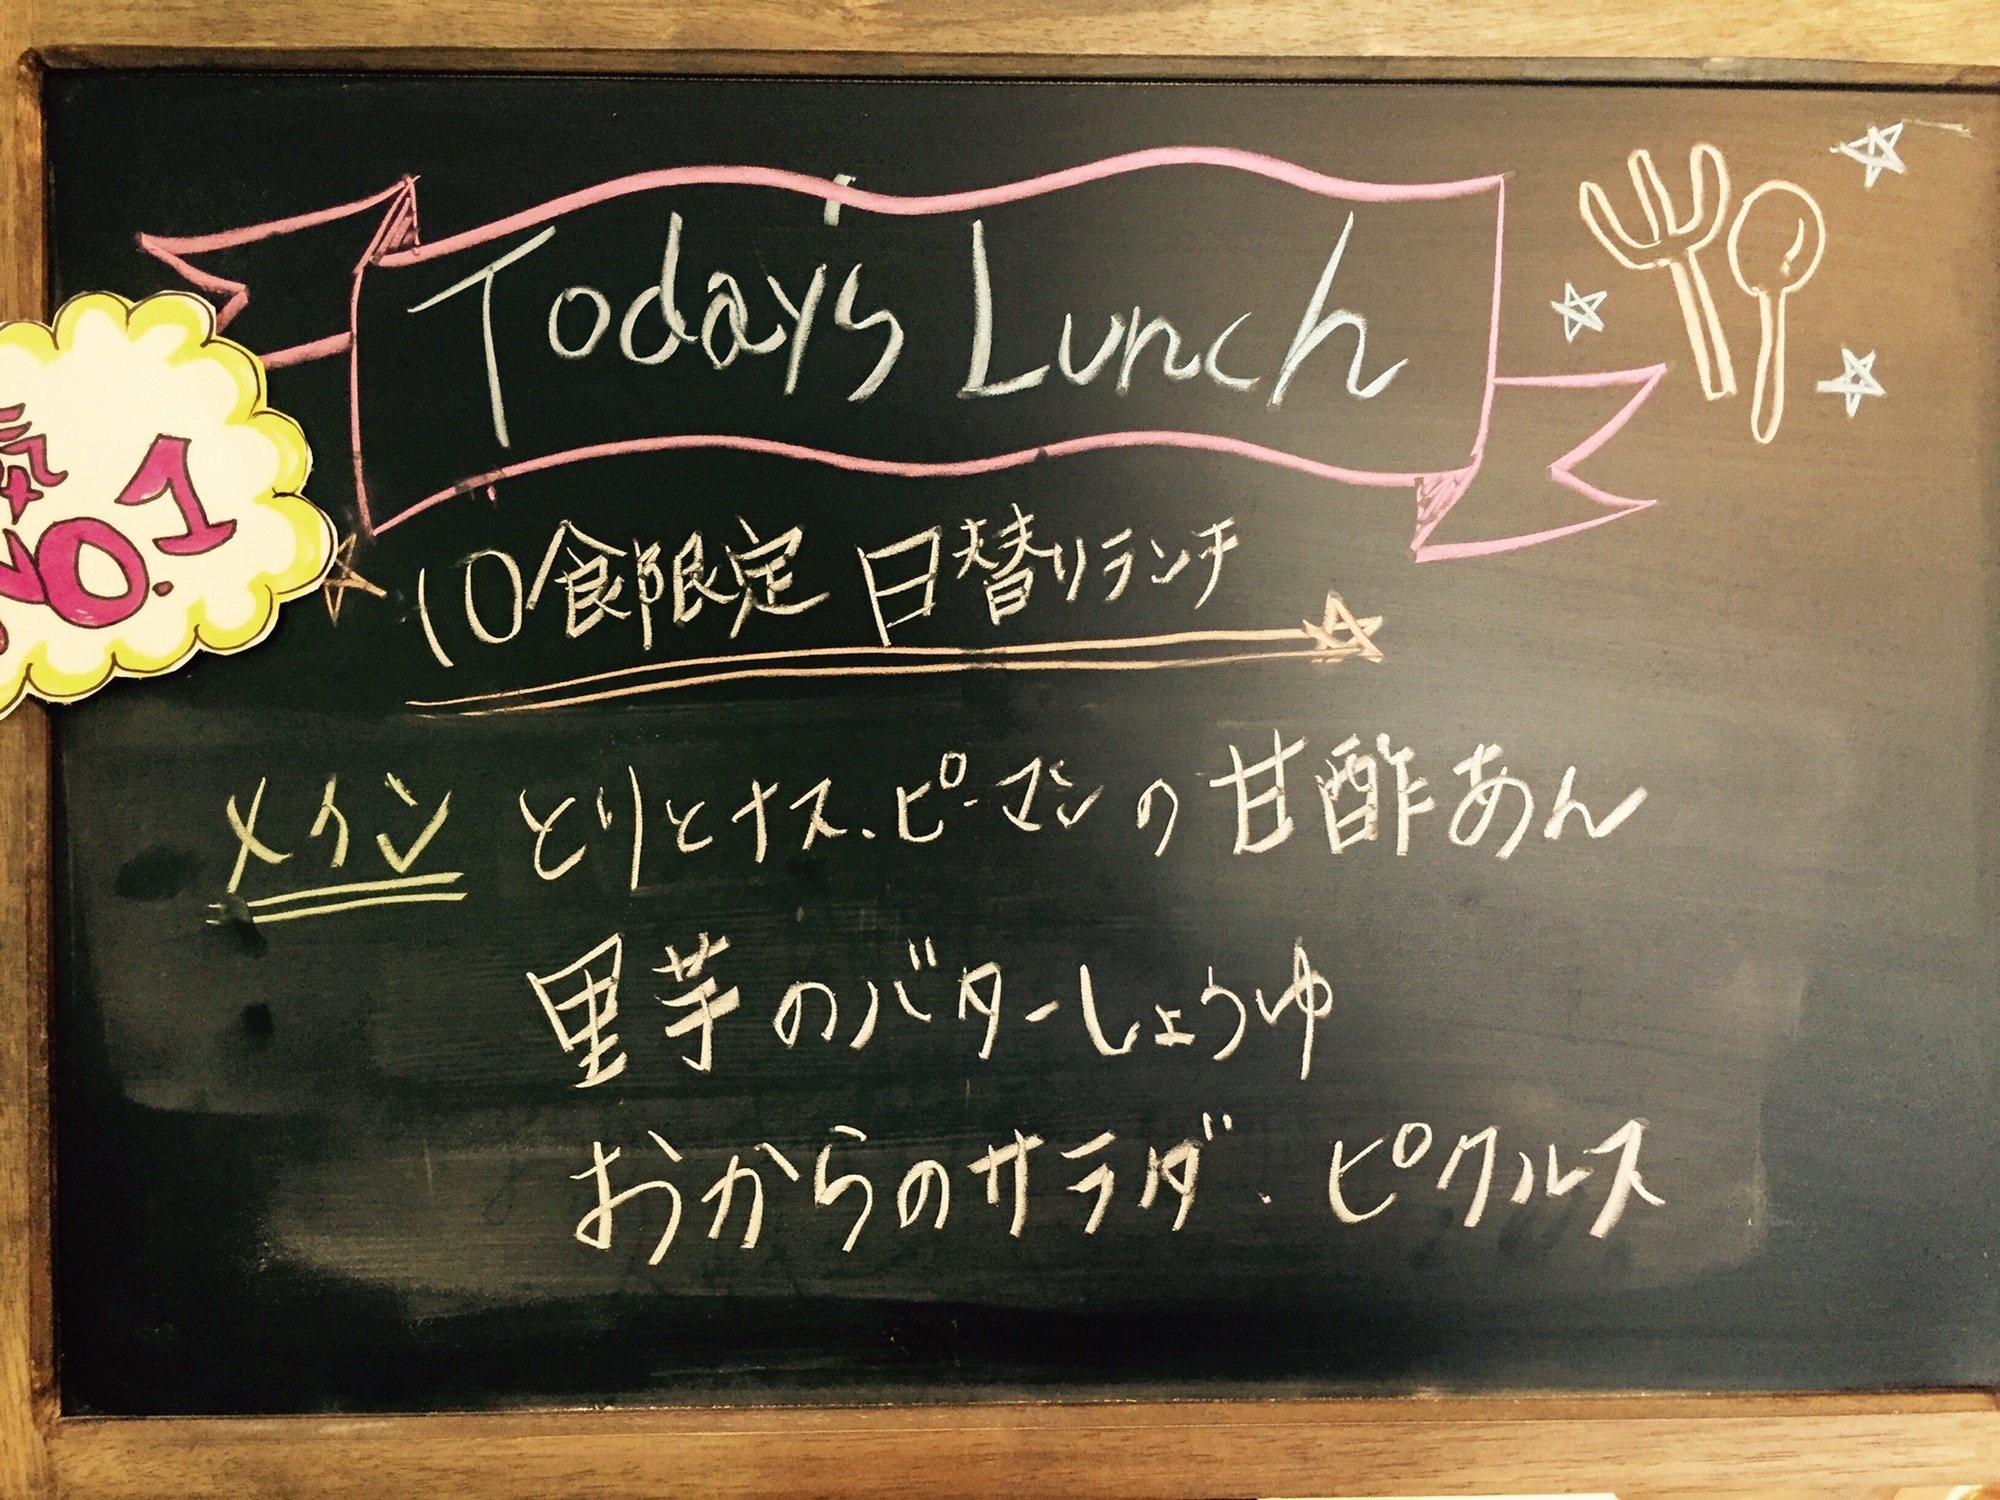 Today's Lunch
気
No.1
10食限定 日替りランチ
メイン とりとナス、ピーマンの甘酢あん
里芋のバターしょうゆ
おからのサラダ・ピクルス